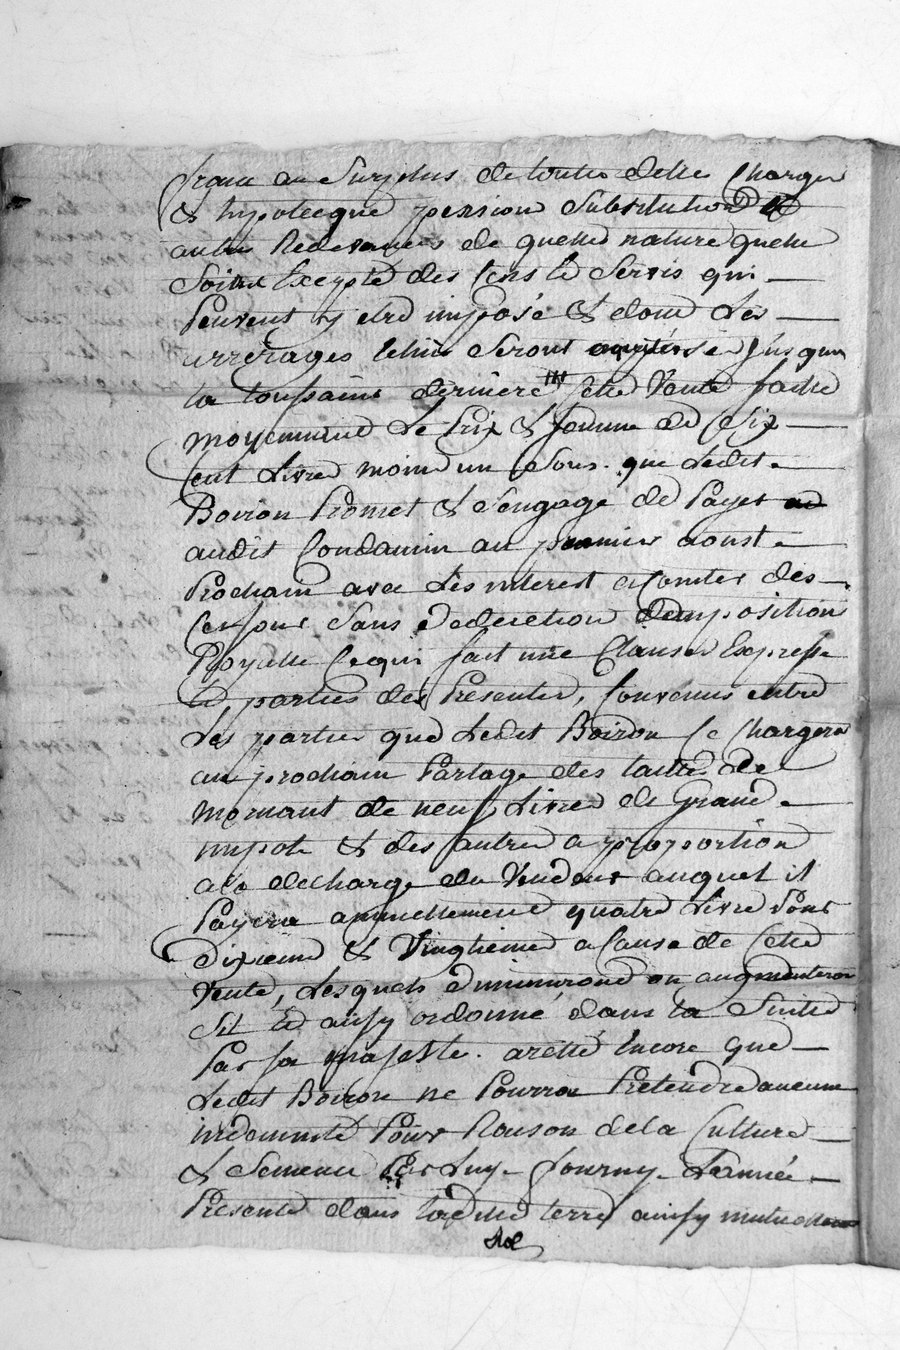 franc au Surplus de toutes dette Charger
& hypotecque pension Substitution &
autre Redevances de quelle nature quelle
Soint Excepté des Cens le Servis qui
Peuvent y etre imposé & dont Les
arrérages Echus Seront acquités Jusqua
la toussaint derniere cette Vente faitte
moyennant Le Prix & Somme de Six
Cent Livre moins un Sous. que Ledit
Boiron Promet & s'engage de Payer
audit Condamin au premier aoust
Prochain avec Les interest a Comter des
Ce jour Sans deduction d'imposition
Royalle Cequi fait une Clause Expresse
parties des Presentes, Convenus entre
Les parties que Ledit Boiron Se Chargera
au prochain Partage des tailles de
mornant de neuf Livres de Grand
impot & des autre a proportion
ala decharge du Vendeur auquel il
Payera annuellement quatre Livre Pour
dixieme & Vingtieme a Cause de Cette
Vente, Lesquels diminuront ou augmenteron
Sil Est ainsy ordonné dans la Suitte
Par Sa majesté. aretté Encore que
Ledit Boiron ne Pourra Pretendre aucune
indemnité Pour Raison dela Culture
& Semence Par Luy fourny Lannée
Presente dans Ladite terre ainsy